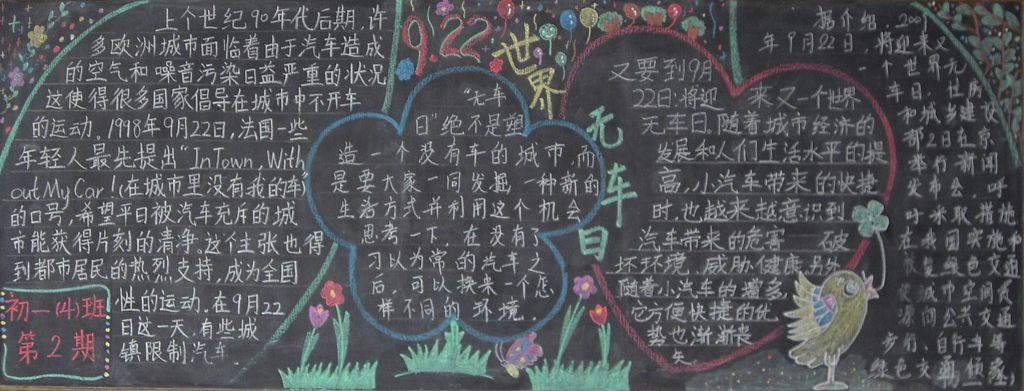 上个世纪90年代后期,许
多欧洲城市面临着由于汽车造成
的空气和噪音污染日益严重的状况
这使得很多国家倡导在城市中不开车
的运动。1998年9月22日,法国一些
年轻人最先提出"In Town, With
out My Car!(在城市里没有我的车)
的口号,希望平日被汽车充斥的城
市能获得片刻的清净。这个主张也得
到都市居民的热烈支持,成为全国
性的运动。在9月22
日这一天,有些城
镇限制汽车.
初一(4)班
第2期
9.22
世界
无车日
"无车
日"绝不是塑
造一个没有车的城市,而
是要大家一同发掘一种新的
生活方式并利用这个机会
思考一下,在没有了
习以为常的汽车之
后,可以换来一个怎
样不同的环境.
又要到9月
22日:将迎来又一个世界
无车日。随着城市经济的
发展和人们生活水平的提
高,小汽车带来的快捷
时,也越来越意识到
汽车带来的危害 破
坏环境、威胁健康,另外
随着小汽车的增多,
它方便快捷的优
势也渐渐丧
失.
介绍,200
年9月22日,将迎来又
一个世界无
车日,
和城乡建设
部2日在京
举行新闻
发布会,呼
吁采取措施
在我国实施和
绿色交通
公共交通
步行、自行车等
绿色交通